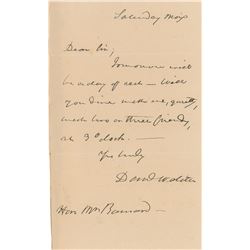 Saturday Morg
Dear Sir;
Tomorrow will
be a day of rest — Will
you dine with me, quietly,
with two or three friends,
at 3 o'clock. —
Yrs truly
Danl Webster
Hon Mr Barnard —